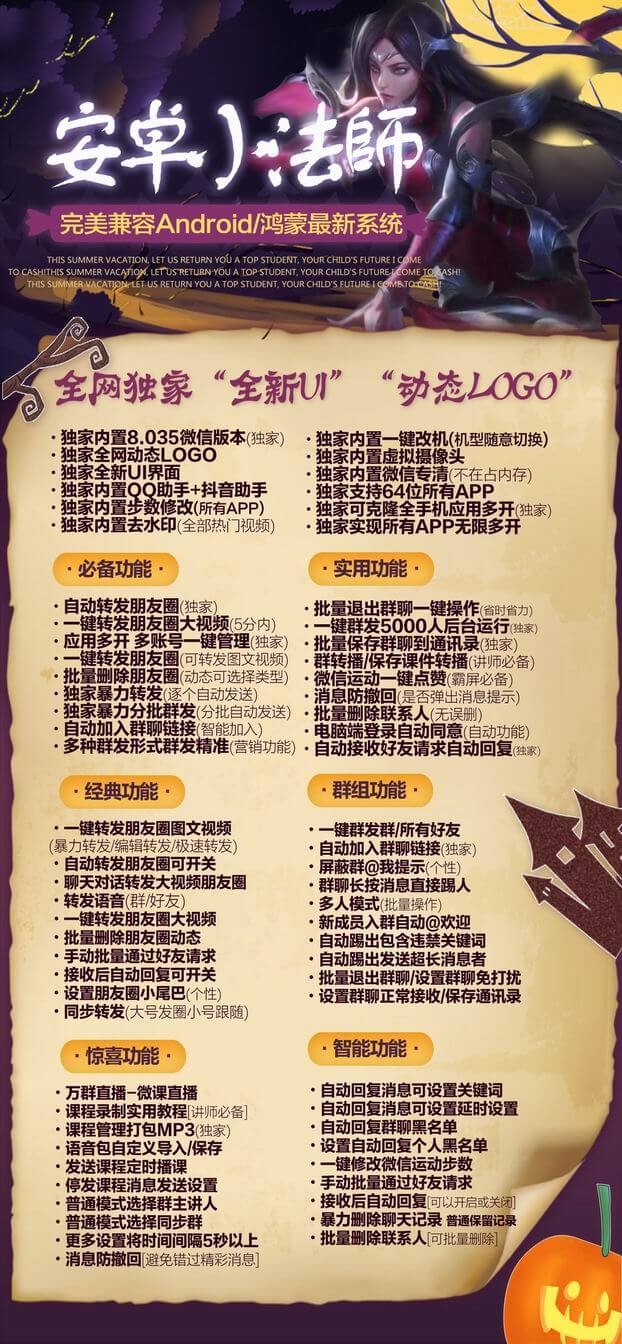 安卓小法師
完美兼容Android/鸿蒙最新系统
THIS SUMMER VACATION, LET US RETURN YOU A TOP STUDENT, YOUR CHILD'S FUTURE I COME
TO CASH!THIS SUMMER VACATION, LET US RETURN YOU A TOP STUDENT, YOUR CHILD'S FUTURE I COME TO CASH!
THIS SUMMER VACATION, LET US RETURN YOU A TOP STUDENT, YOUR CHILD'S FUTURE I COME TO CASH!
全网独家“全新UI” “动态LOGO”
·独家内置8.035微信版本(独家)
·独家全网动态LOGO
·独家全新UI界面
·独家内置QQ助手+抖音助手
·独家内置步数修改(所有APP)
·独家内置去水印(全部热门视频)
·独家内置一键改机(机型随意切换)
·独家内置虚拟摄像头
·独家内置微信专清(不在占内存)
·独家支持64位所有APP
·独家可克隆全手机应用多开(独家)
·独家实现所有APP无限多开
·必备功能·
·自动转发朋友圈(独家)
·一键转发朋友圈大视频(5分内)
·应用多开 多账号一键管理(独家)
·一键转发朋友圈(可转发图文视频)
·批量删除朋友圈(动态可选择类型)
·独家暴力转发(逐个自动发送)
·独家暴力分批群发(分批自动发送)
·自动加入群聊链接(智能加入)
·多种群发形式群发精准(营销功能)
·实用功能·
·批量退出群聊一键操作(省时省力)
·一键群发5000人后台运行(独家)
·批量保存群聊到通讯录(独家)
·群转播/保存课件转播(讲师必备)
·微信运动一键点赞(霸屏必备)
·消息防撤回(是否弹出消息提示)
·批量删除联系人(无误删)
·电脑端登录自动同意(自动功能)
·自动接收好友请求自动回复(独家)
·经典功能·
·一键转发朋友圈图文视频
(暴力转发/编辑转发/极速转发)
·自动转发朋友圈可开关
·聊天对话转发大视频朋友圈
·转发语音(群/好友)
·一键转发朋友圈大视频
·批量删除朋友圈动态
·手动批量通过好友请求
·接收后自动回复可开关
·设置朋友圈小尾巴(个性)
·同步转发(大号发圈小号跟随)
·群组功能·
·一键群发群/所有好友
·自动加入群聊链接(独家)
·屏蔽群@我提示(个性)
·群聊长按消息直接踢人
·多人模式(批量操作)
·新成员入群自动@欢迎
·自动踢出包含违禁关键词
·自动踢出发送超长消息者
·批量退出群聊/设置群聊免打扰
·设置群聊正常接收/保存通讯录
·惊喜功能·
·万群直播-微课直播
·课程录制实用教程[讲师必备]
·课程管理打包MP3(独家)
·语音包自定义导入/保存
·发送课程定时播课
·停发课程消息发送设置
·普通模式选择群主讲人
·普通模式选择同步群
·更多设置将时间间隔5秒以上
·消息防撤回[避免错过精彩消息]
·智能功能·
·自动回复消息可设置关键词
·自动回复消息可设置延时设置
·自动回复群聊黑名单
·设置自动回复个人黑名单
·一键修改微信运动步数
·手动批量通过好友请求
·接收后自动回复[可以开启或关闭]
·暴力删除聊天记录 普通保留记录
·批量删除联系人[可批量删除]